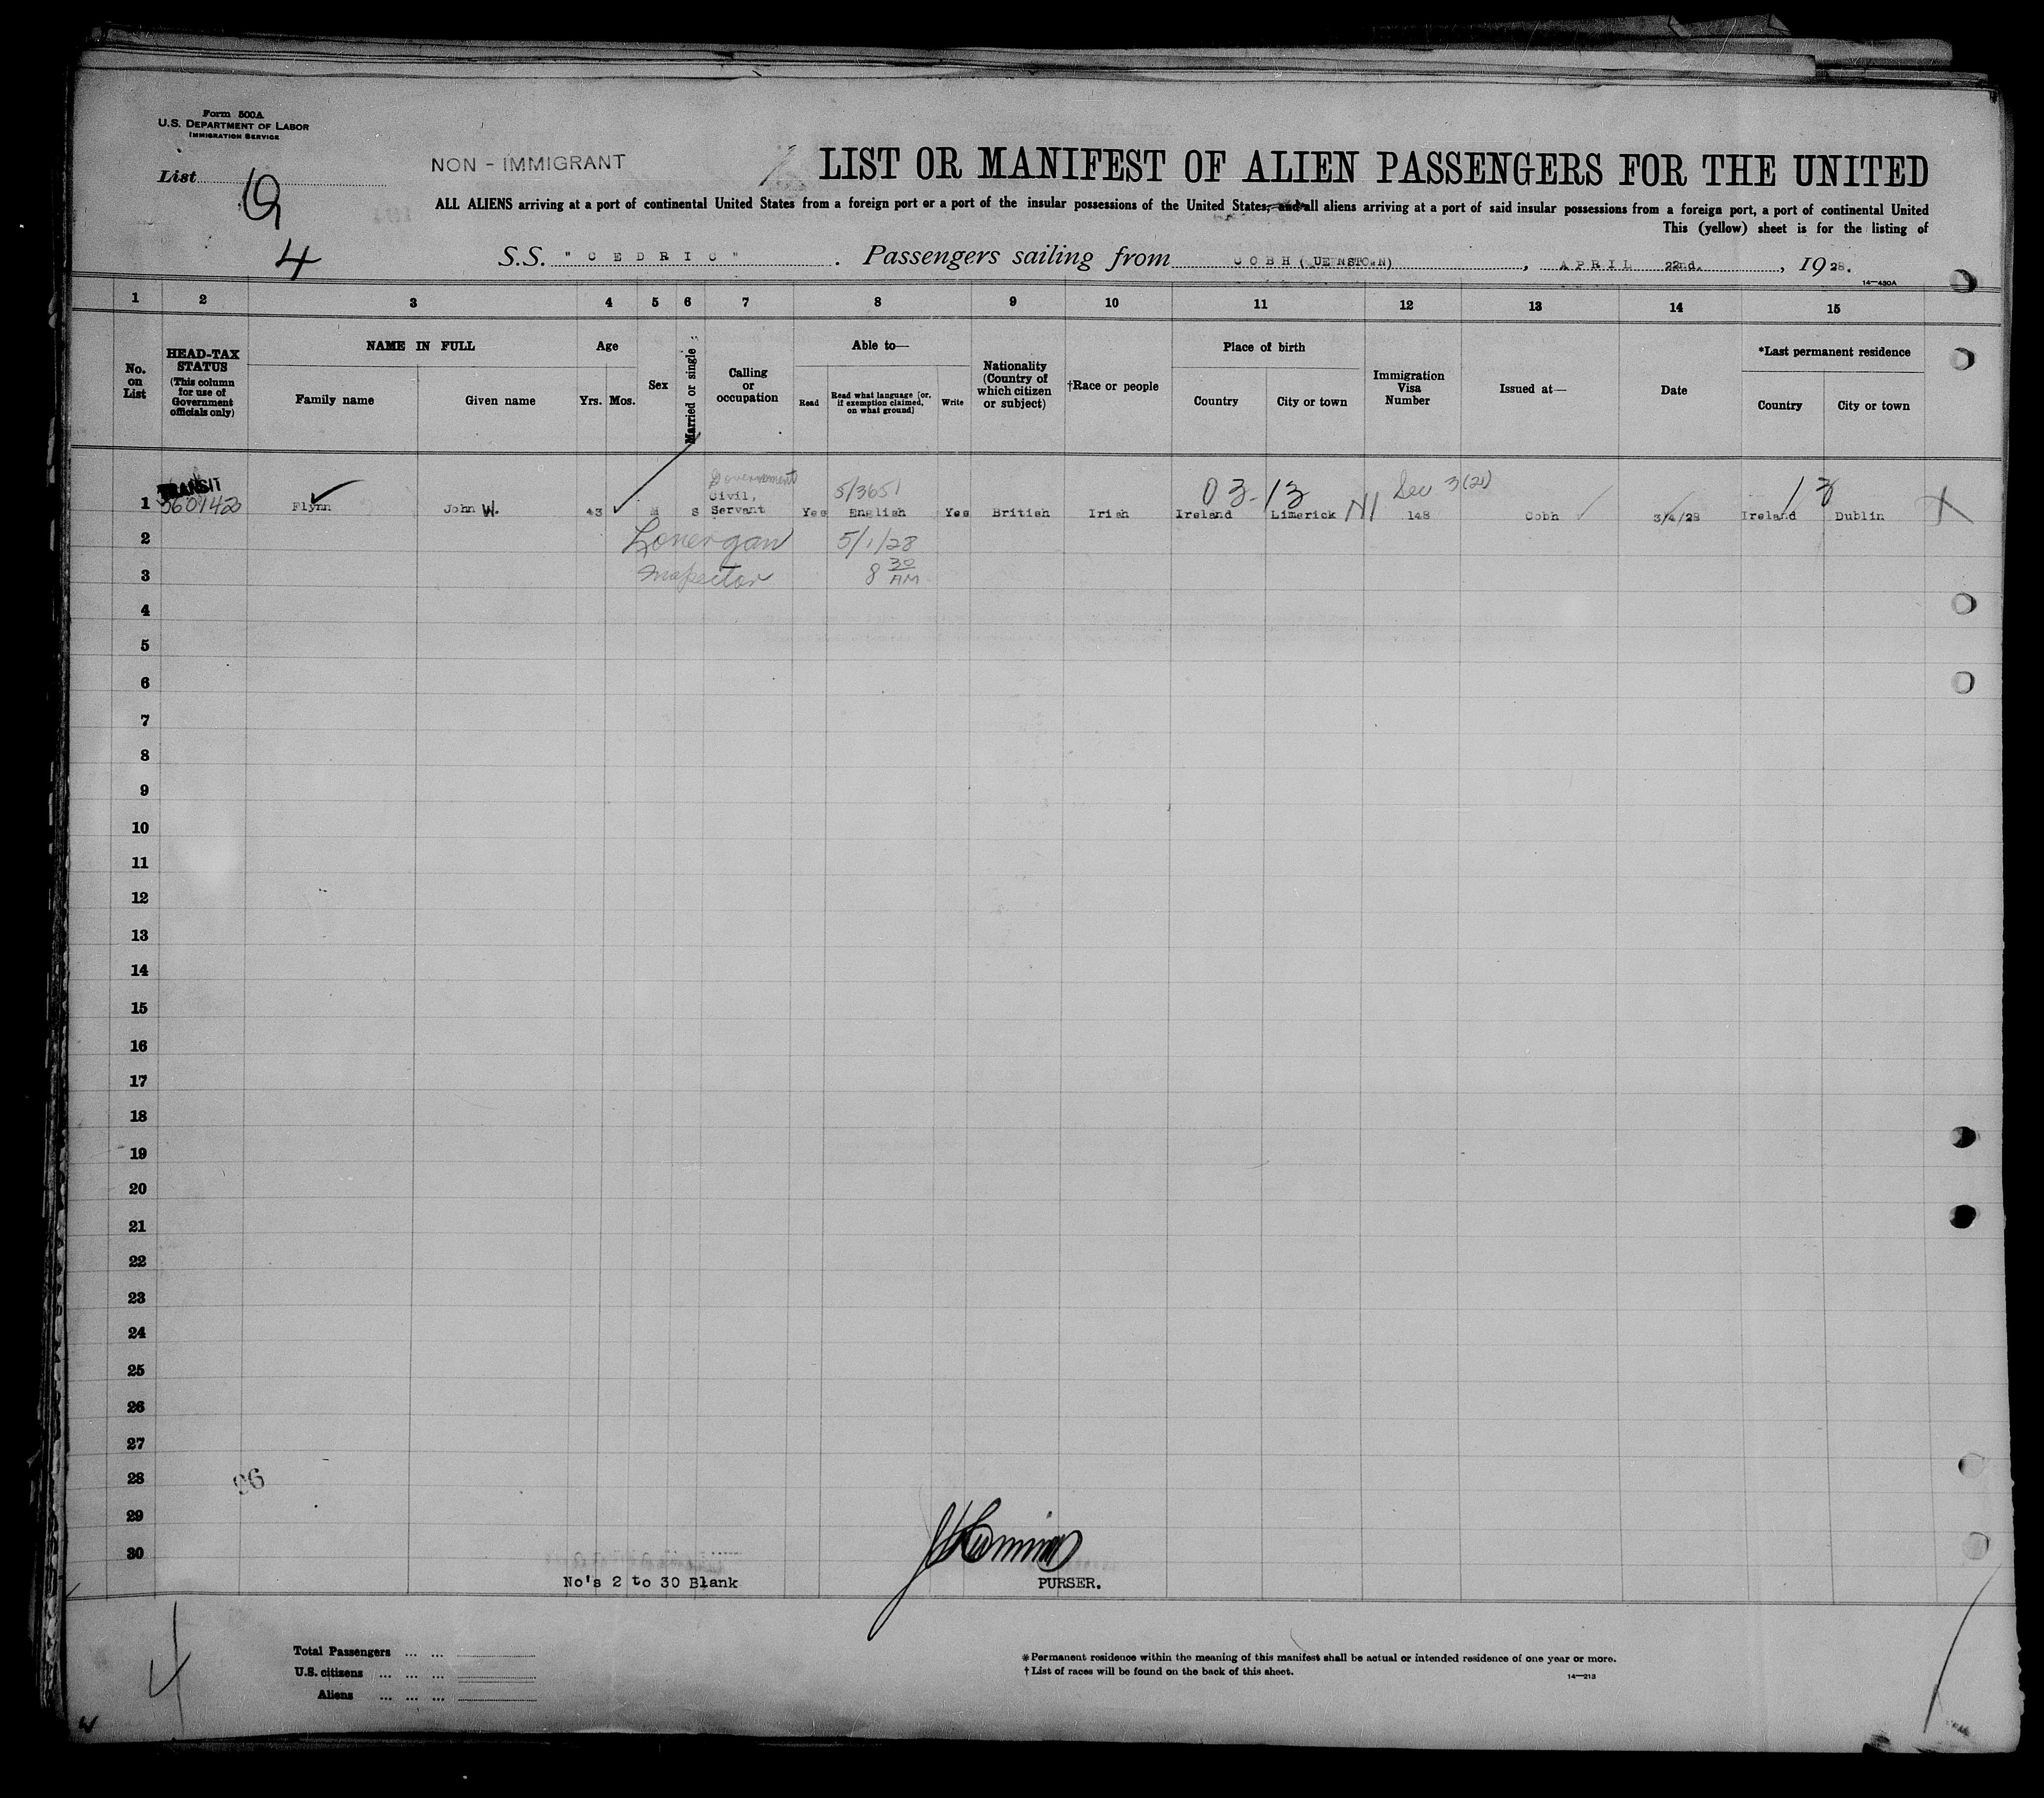 Form 500A
U.S. DEPARTMENT OF LABOR
IMMIGRATION SERVICE
NON - IMMIGRANT
LIST OR MANIFEST OF ALIEN PASSENGERS FOR THE UNITED
List
ALL ALIENS arriving at a port of continental United States from a foreign port or a port of the insular possessions of the United States, and all aliens arriving at a port of said insular possessions from a foreign port, a port of continental United
This (yellow) sheet is for the listing of
4
S.S. " C E D R I C " . Passengers sailing from COBH ( UEENSTOWN) , APRIL 22nd. , 1928.
14—430A
1 2 3 4 5 6 7 8 9 10 11 12 13 14 15
No. on List
HEAD-TAX STATUS
(This column for use of Government officials only)
NAME IN FULL
Family name Given name
Age
Yrs. Mos.
Sex
Married or single
Calling or occupation
Able to—
Read
Read what language [or, if exemption claimed, on what ground]
Write
Nationality (Country of which citizen or subject)
†Race or people
Place of birth
Country City or town
Immigration Visa Number
Issued at—
Date
*Last permanent residence
Country City or town
TRANSIT
Government 5/3651 03-13 Sec 3(2) 13
1 Flynn John W. 43 M S Civil, Servant Yes English Yes British Irish Ireland Limerick NI 148 Cobh 3/4/28 Ireland Dublin X
2 Lonergan 5/1/28
3 Inspector 8 30 AM
4
5
6
7
8
9
10
11
12
13
14
15
16
17
18
19
20
21
22
23
24
25
26
27
28 26
29
30
No's 2 to 30 Blank
PURSER.
Total Passengers ... ...
U.S. citizens ... ... ...
Aliens ... ... ...
*Permanent residence within the meaning of this manifest shall be actual or intended residence of one year or more.
†List of races will be found on the back of this sheet.
14—213